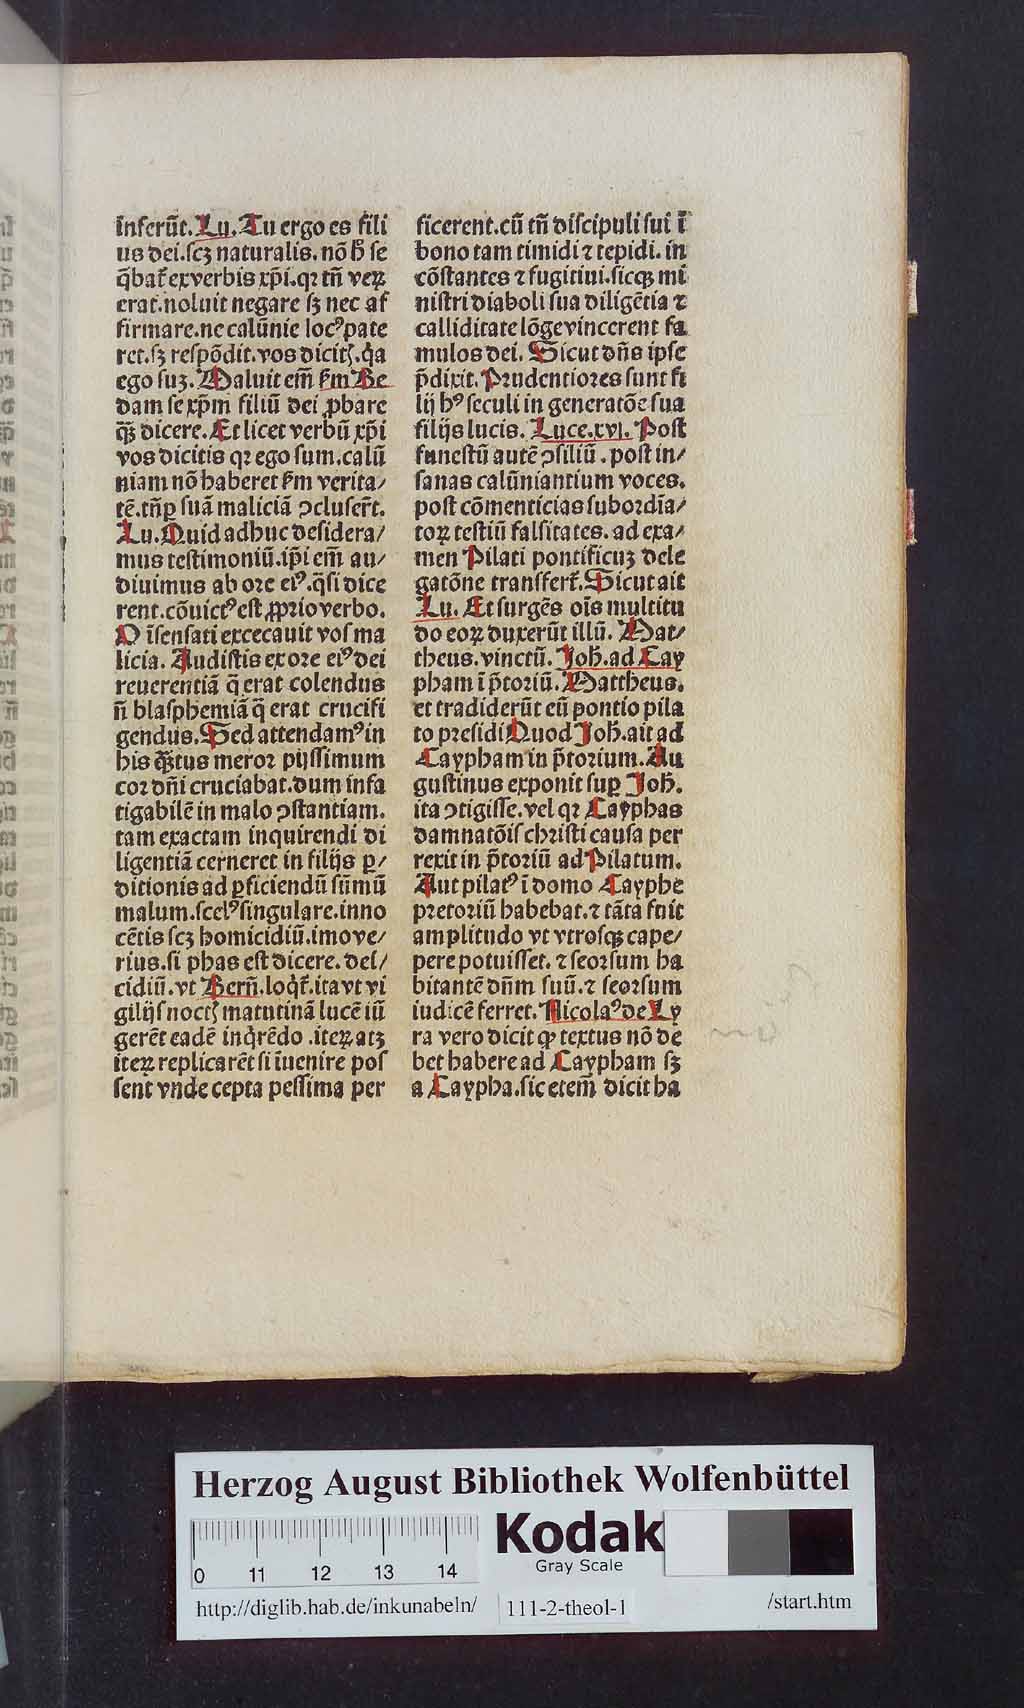 inferūt. Lu. Tu ergo es fili
us dei. scꝫ naturalis. nō hͦ se
q̄bat᷑ ex verbis xp̄i. qꝛ tn̄ veꝝ
erat. noluit negare sꝫ nec af
firmare. ne calūnie locꝰ pate
ret. sꝫ respōdit. vos dicitꝭ. q̇a
ego suꝫ. Maluit em̄ km̄ Be
dam se xp̄m filiū dei ꝓbare
qͣꝫ dicere. Et licet verbū xp̄i
vos dicitis qꝛ ego sum. calū
niam nō haberet km̄ verita/
tē. tn̄ ꝑ suā maliciā ꝯcluser̄t.
Lu. Quid adhuc desidera/
mus testimoniū. ip̄i em̄ au/
diuimus ab ore eiꝰ. q̄si dice
rent. cōuictꝰ est ꝓprio verbo.
O īsensati excecauit vos ma
licia. Audistis ex ore eiꝰ dei
reuerentiā q̄ erat colendus
n̄ blasphemiā q̄ erat crucifi
gendus. Sed attendamꝰ in
his qͣꝫtus meror pijssimum
cor dn̄i cruciabat. dum infa
tigabilē in malo ꝯstantiam.
tam exactam inquirendi di
ligentiā cerneret in filijs ꝑ/
ditionis ad ꝑficiendū sūmū
malum. scelꝰ singulare. inno
cētis scꝫ homicidiū. imo ve/
rius. si phas est dicere. dei/
cidiū. vt Bern̄. loq̇t᷑. ita vt vi
gilijs noctꝭ matutinā lucē iū
gerēt eadē inq̇rēdo. iteꝝ atꝫ
iteꝝ replicarēt si īuenire pos
sent vnde cepta pessima per
ficerent. cū tn̄ discipuli sui ī
bono tam timidi ⁊ tepidi. in
cōstantes ⁊ fugitiui. sicqꝫ mi
nistri diaboli sua diligētia ⁊
calliditate lōge vincerent fa
mulos dei. Sicut dn̄s ipse
p̄dixit. Prudentiores sunt fi
lij hꝰ seculi in generatōe sua
filijs lucis. Luce. xvi. Post
funestū autē ꝯsiliū. post in/
sanas calūniantium voces.
post cōmenticias subordīa/
toꝝ testiū falsitates. ad exa/
men Pilati pontificuꝫ dele
gatōne transfert᷑. Sicut ait
Lu. Et surgēs oīs multitu
do eoꝝ duxerūt illū. Mat/
theus. vinctū. Joh̄. ad Cay
pham ī p̄toriū. Mattheus.
et tradiderūt eū pontio pila
to presidi Quod Joh̄. ait ad
Caypham in p̄torium. Au
gustinus exponit suꝑ Joh̄.
ita ꝯtigisse. vel qꝛ Cayphas
damnatōis christi causa per
rexit in p̄toriū ad Pilatum.
Aut pilatꝰ ī domo Cayphe
pretoriū habebat. ⁊ tāta fuit
amplitudo vt vtrosqꝫ cape/
pere potuisset. ⁊ seorsum ha
bitantē dn̄m suū. ⁊ seorsum
iudicē ferret. Nicolaꝰ de Ly
ra vero dicit ꝙ textus nō de
bet habere ad Caypham sꝫ
a Caypha. sic etem̄ dicit ha
Herzog August Bibliothek Wolfenbüttel
0 11 12 13 14
Kodak
Gray Scale
http://diglib.hab.de/inkunabeln/ 111-2-theol-1 /start.htm